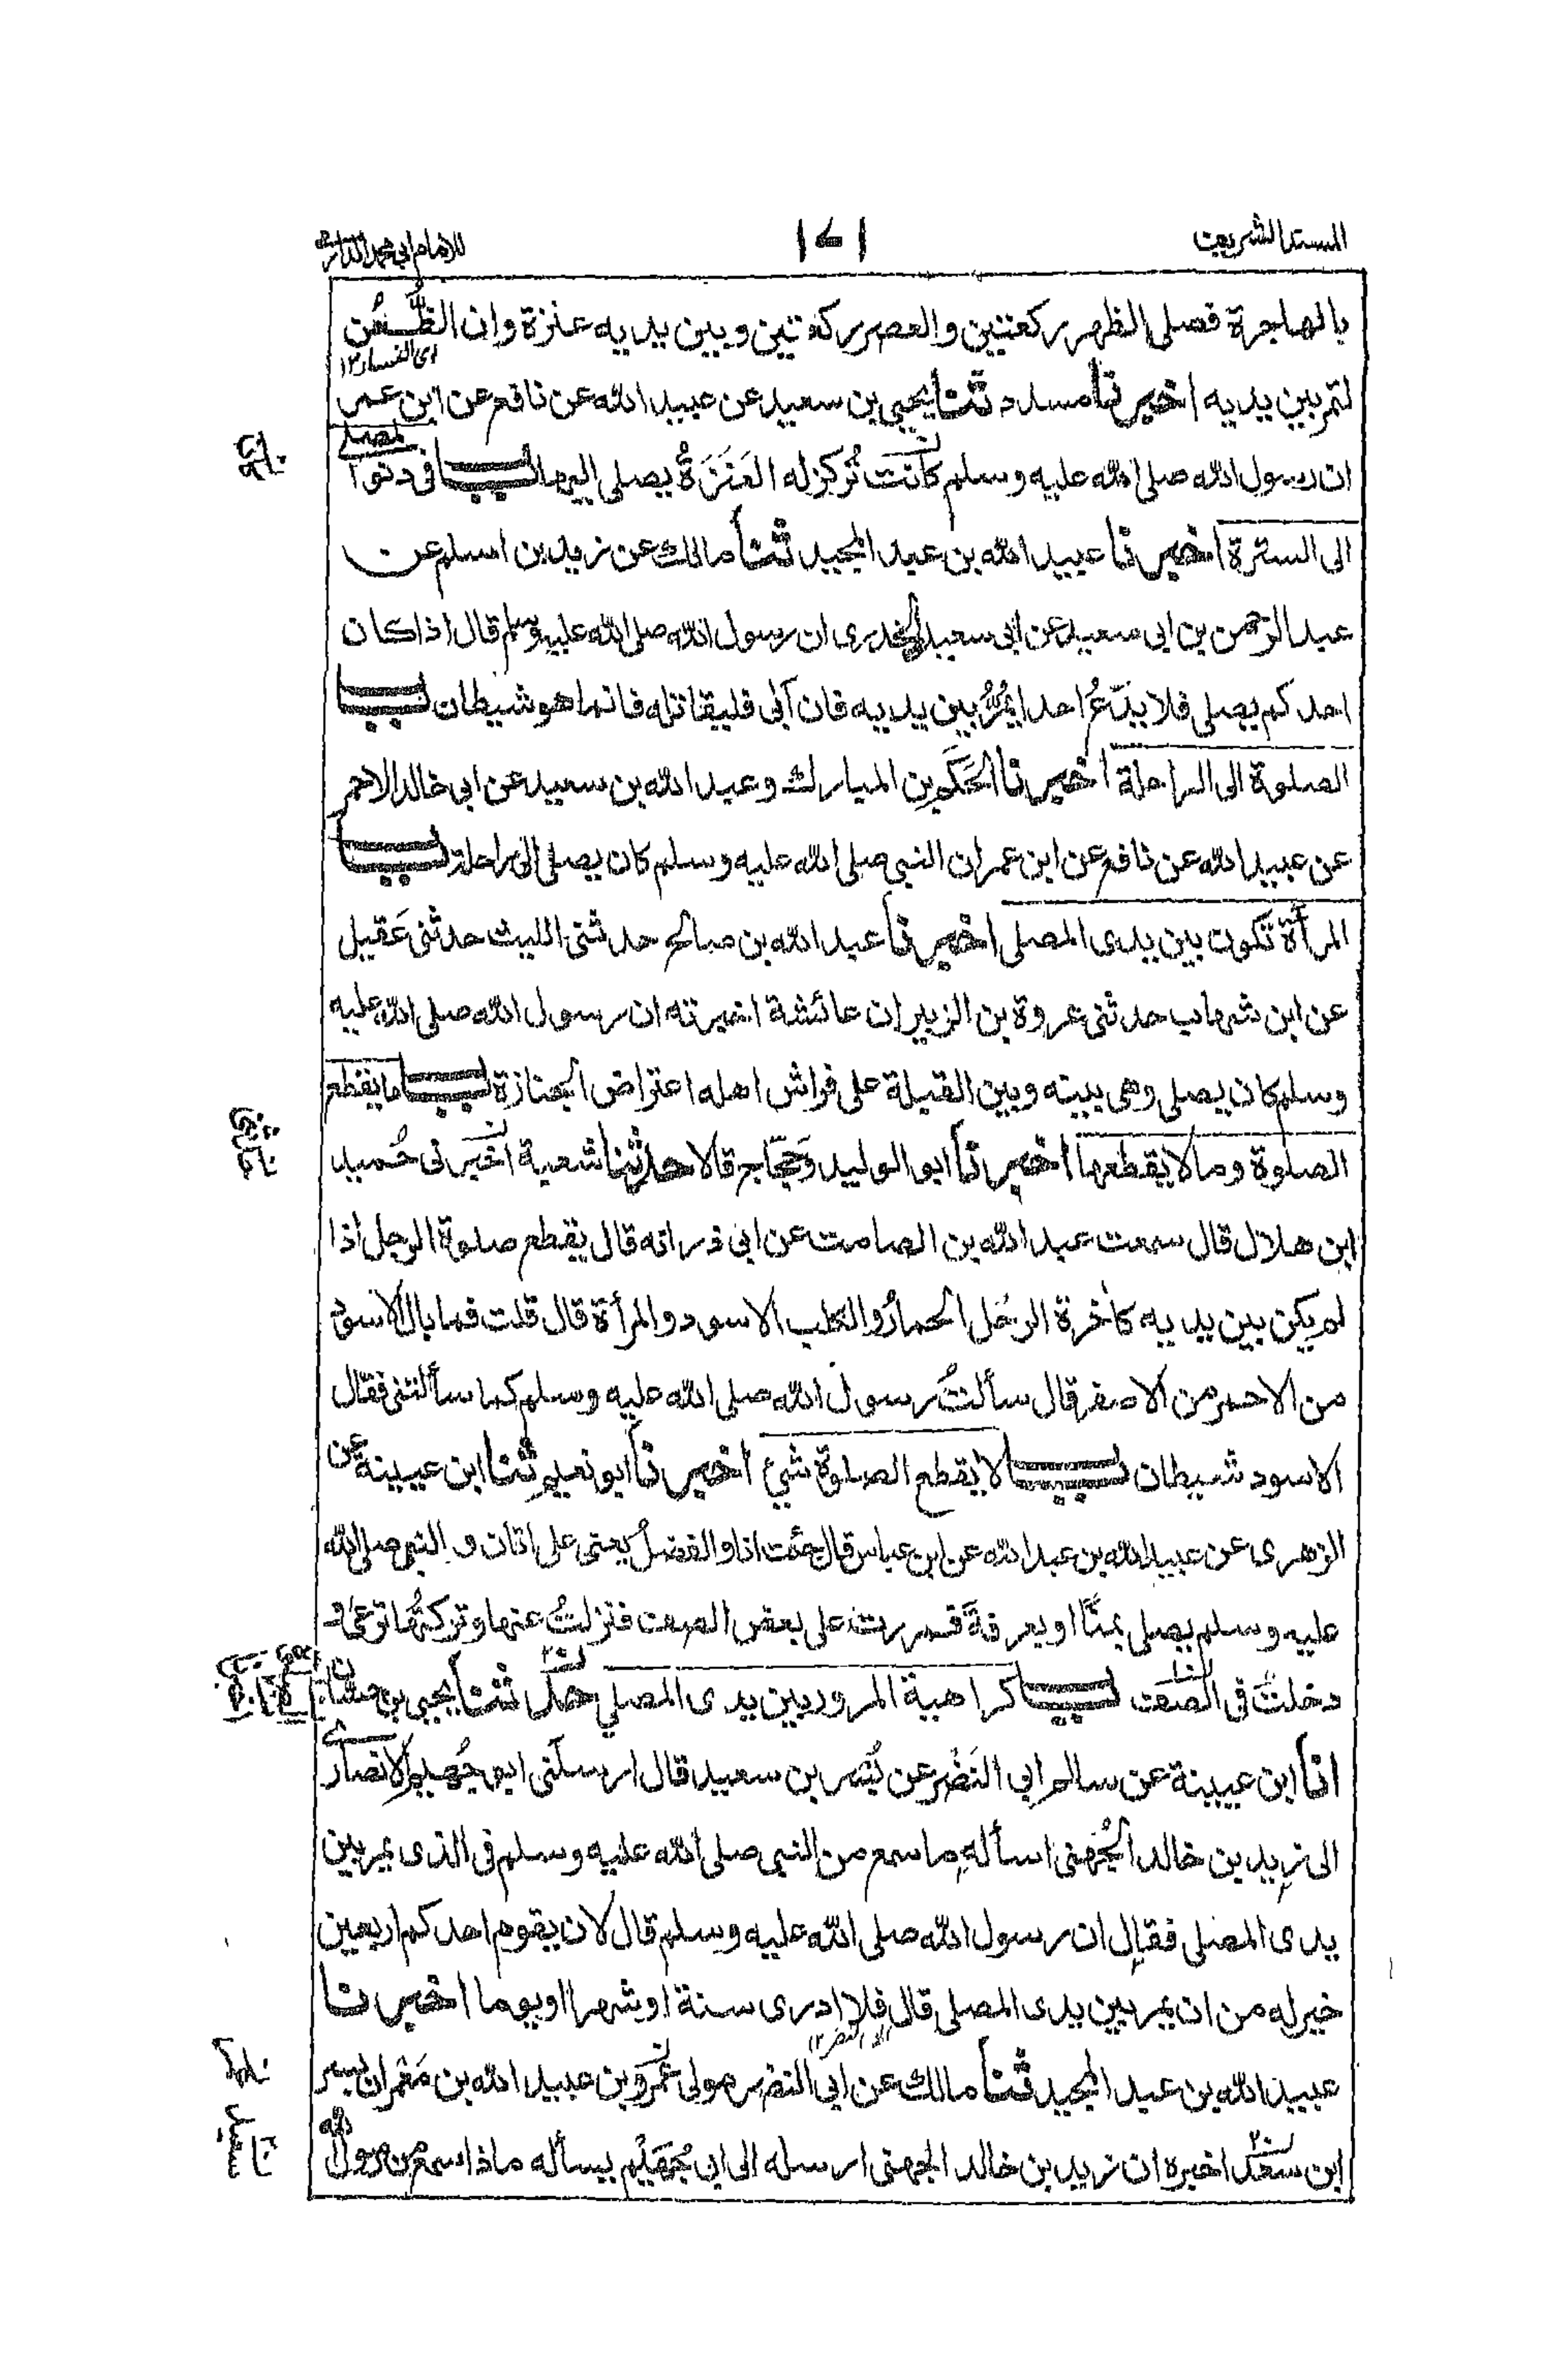 المسند الشريف
١٧١
للامام ابى محمد الدارمى
بالهاجرة فصلى الظهر ركعتين والعصر ركعتين وبين يديه عنزة وان الظُّعُن
اى النساء ١٢
لتمر بين يديه اخبرنا مسدد ثنا يحيى بن سعيد عن عبيد الله عن نافع عن ابن عمر
ان رسول الله صلى الله عليه وسلم كانت تُركز له العَنَزَةُ يصلى اليها باب فى دنو المصلى
الى السترة اخبرنا عبيد الله بن عبد المجيد ثنا مالك عن زيد بن اسلم عن
عبد الرحمن بن ابى سعيد عن ابى سعيد الخدرى ان رسول الله صلى الله عليه وسلم قال اذا كان
احدكم يصلى فلا يدَعُ احدا يمُرُّ بين يديه فان أبى فليقاتله فانما هو شيطان باب
الصلوة الى الراحلة اخبرنا الحَكَم بن المبارك وعبد الله بن سعيد عن ابى خالد الاحمر
عن عبيد الله عن نافع عن ابن عمر ان النبى صلى الله عليه وسلم كان يصلى الى راحلة باب
المرأة تكون بين يدى المصلى اخبرنا عبد الله بن صالح حدثنى الليث حدثنى عَقيل
عن ابن شهاب حدثنى عروة بن الزبير ان عائشة اخبرته ان رسول الله صلى الله عليه
وسلم كان يصلى وهى بينه وبين القبلة على فراش اهله اعتراض الجنازة باب ما يقطع
الصلوة وما لا يقطعها اخبرنا ابو الوليد وحَجّاج قالا حدثنا شعبة اخبرنى حُميد
ابن هلال قال سمعت عبد الله بن الصامت عن ابى ذر انه قال يقطع صلوة الرجل اذا
لم يكن بين يديه كأخرة الرحُل الحمارُ والكلب الاسود والمرأة قال قلت فما بال الاسود
من الاحمر من الاصفر قال سألتُ رسول الله صلى الله عليه وسلم كما سألتنى فقال
الاسود شيطان باب لا يقطع الصلوة شئ اخبرنا ابو نعيم ثنا ابن عيينة عن
الزهرى عن عبيد الله بن عبد الله عن ابن عباس قال جئت انا والفضلُ يعنى على اتان و النبى صلى الله
عليه وسلم يصلى بمنًا او بعرفةَ فمررت على بعض الصف فنزلتُ عنها وتركتُها ترعى و
دخلتُ فى الصف باب كراهية المرور بين يدى المصلي حدثنا يحيى بن حسان
انا ابن عيينة عن سالم ابى النَضْر عن بُسْر بن سعيد قال ارسلَنى ابو جُهيم الانصارى
الى زيد بن خالد الجُهنى اسأله ما سمع من النبى صلى الله عليه وسلم فى الذى يمر بين
يدى المصلى فقال ان رسول الله صلى الله عليه وسلم قال لان يقوم احدكم اربعين
خير له من ان يمر بين يدى المصلى قال فلا ادرى سنة او شهرا او يوما اخبرنا
عبيد الله بن عبد المجيد ثنا مالك عن ابى النضر مولى عُمَر بن عبيد الله بن مَعْمَر ان بسر
ابن سعيد اخبره ان زيد بن خالد الجهنى ارسله الى ابى جُهَيْم يسأله ماذا سمع من رسول الله